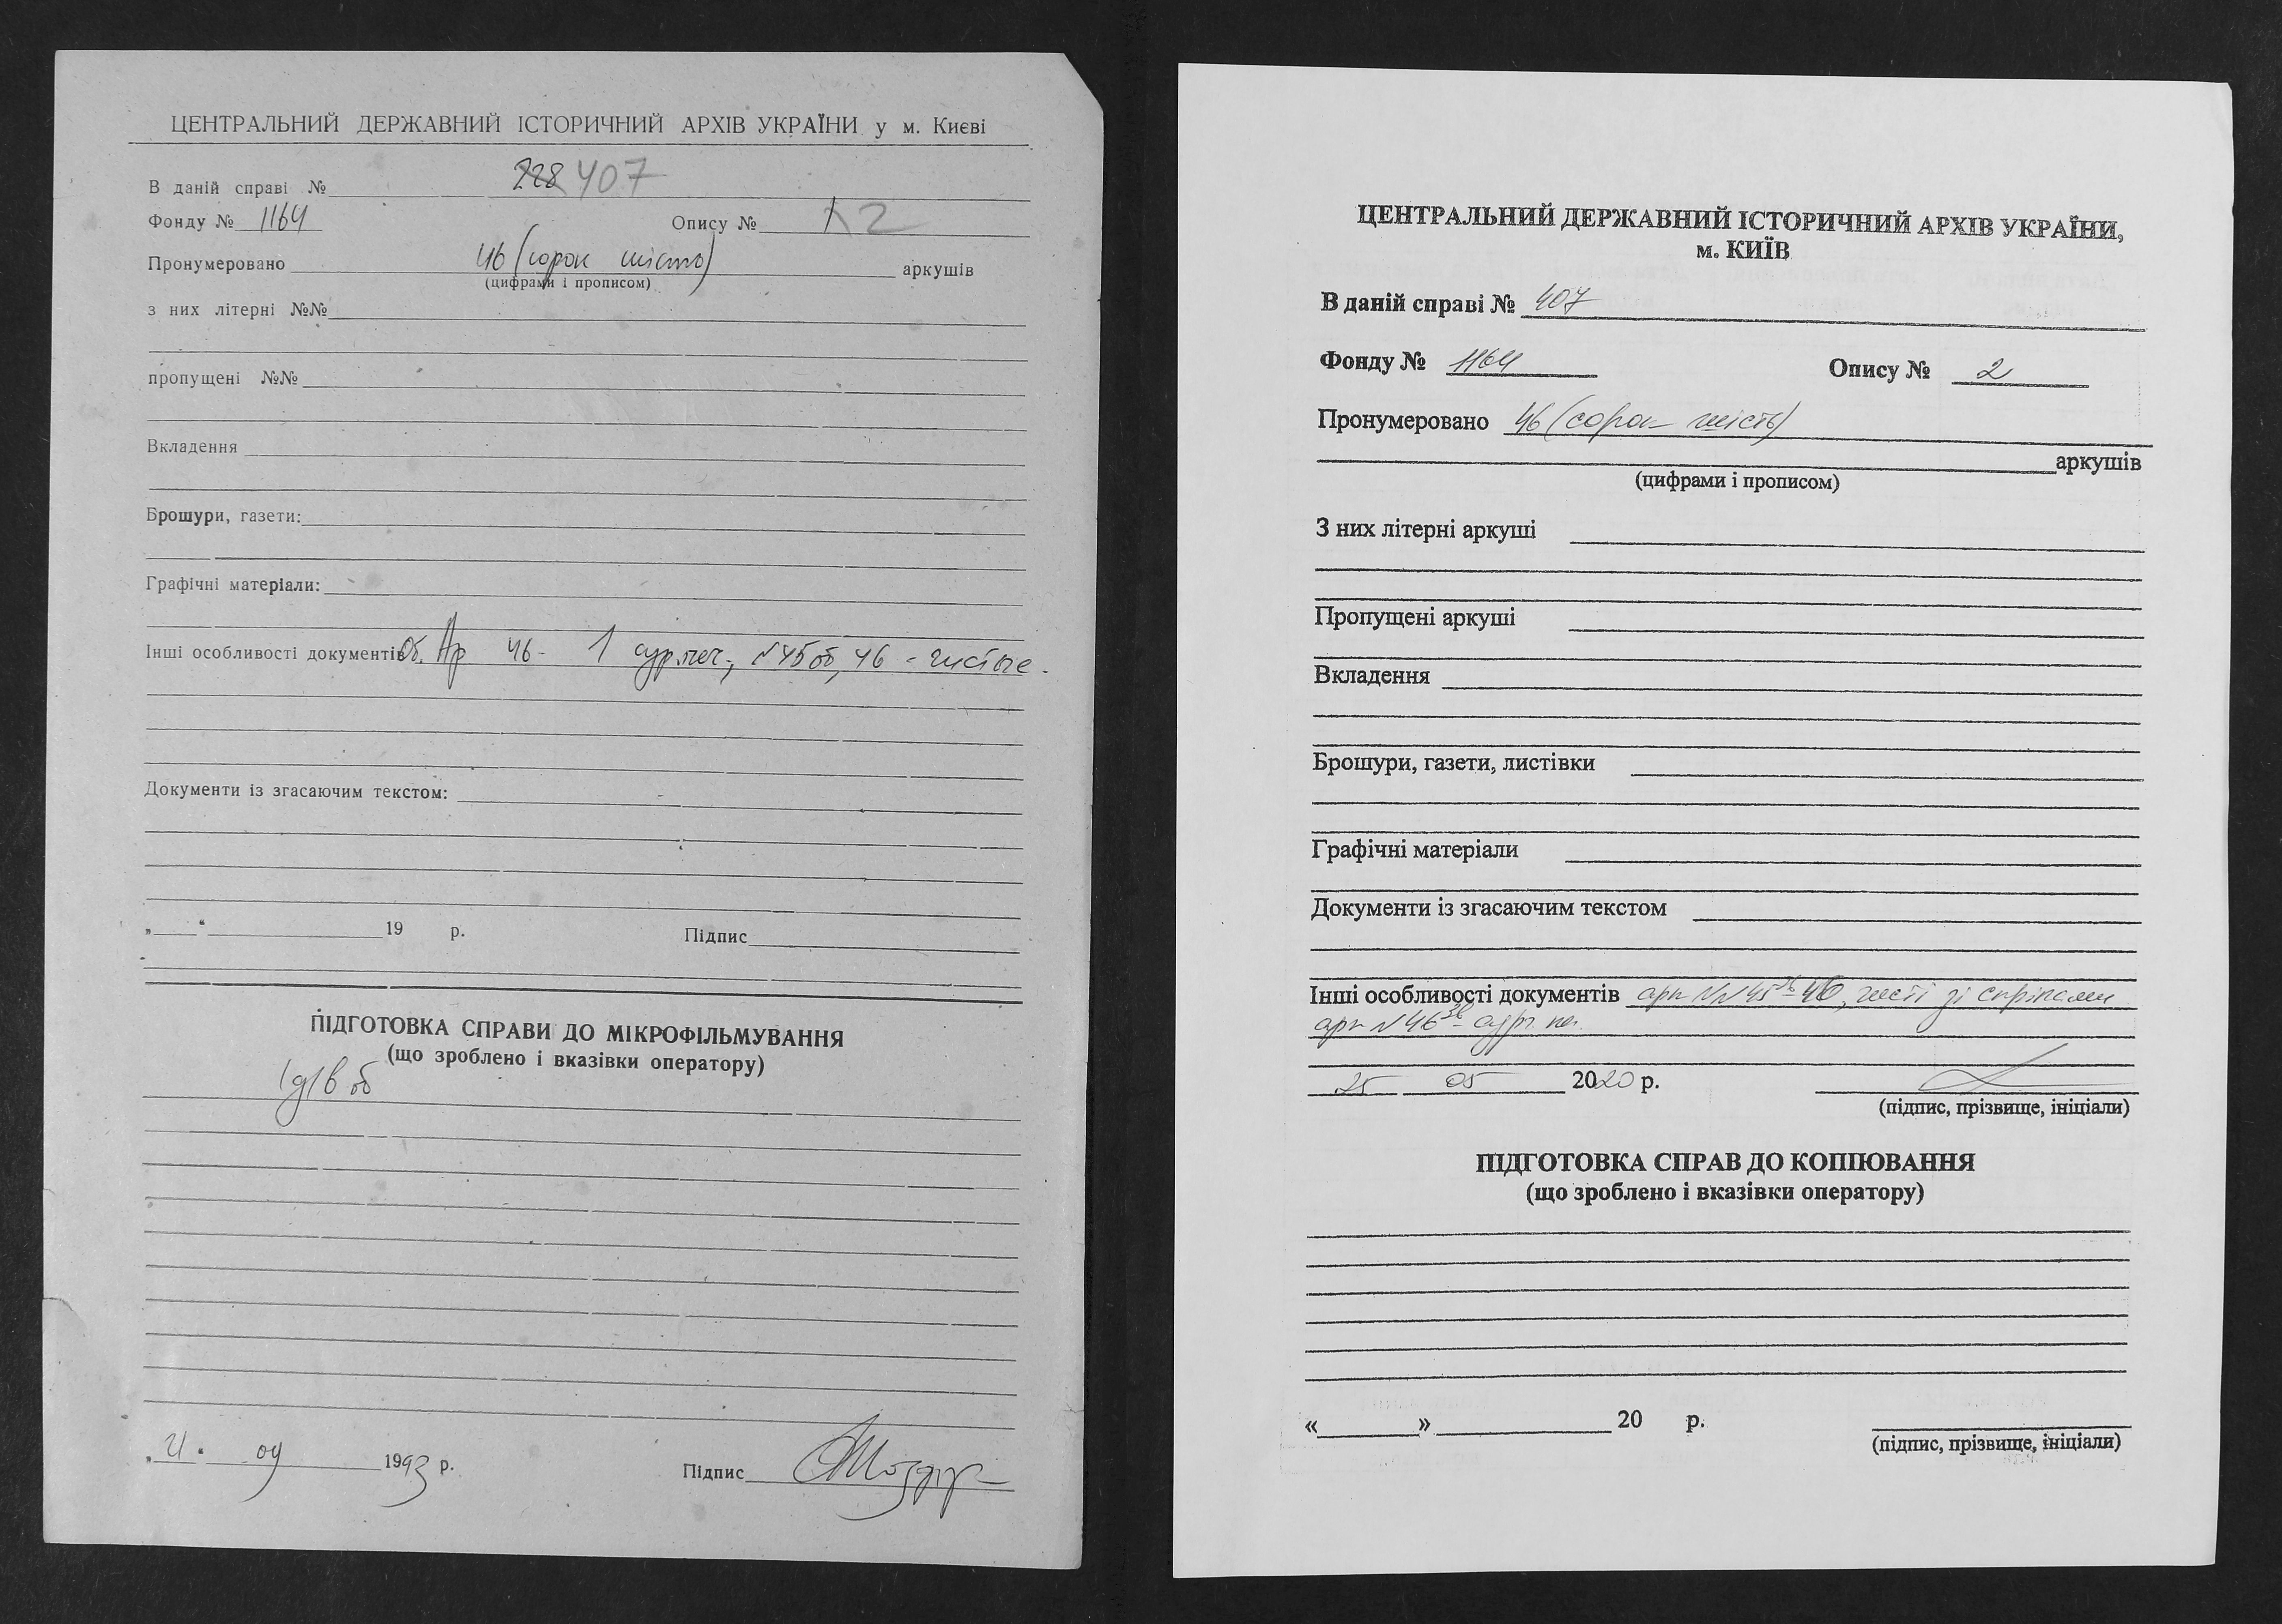 ЦЕНТРАЛЬНИЙ ДЕРЖАВНИЙ ІСТОРИЧНИЙ АРХІВ УКРАЇНИ у м. Києві
В даній справі № 228 407
Фонду № 1164 Опису № 1 2
Пронумеровано 46 (сорок шість) аркушів
(цифрами і прописом)
з них літерні №№
пропущені №№
Вкладення
Брошури, газети:
Графічні матеріали:
Інші особливості документів Об. Ар 46 - 1 сур.печ., №45об, 46 - чистые.
Документи із згасаючим текстом:
„ “ 19 р. Підпис
ПІДГОТОВКА СПРАВИ ДО МІКРОФІЛЬМУВАННЯ
(що зроблено і вказівки оператору)
04 1993 р. Підпис
ЦЕНТРАЛЬНИЙ ДЕРЖАВНИЙ ІСТОРИЧНИЙ АРХІВ УКРАЇНИ,
м. КИЇВ
В даній справі № 407
Фонду № 1164 Опису № 2
Пронумеровано 46 (сорок шість)
аркушів
(цифрами і прописом)
З них літерні аркуші
Пропущені аркуші
Вкладення
Брошури, газети, листівки
Графічні матеріали
Документи із згасаючим текстом
Інші особливості документів арк №№45зв-46, чисті зі скріпами
арк №46зв - сург. печ.
25 05 2020 р.
(підпис, прізвище, ініціали)
ПІДГОТОВКА СПРАВ ДО КОПІЮВАННЯ
(що зроблено і вказівки оператору)
« » 20 р.
(підпис, прізвище, ініціали)